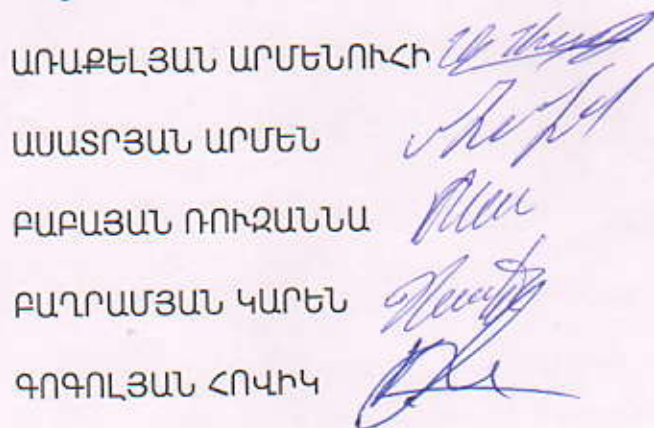 ԱՌԱՔԵԼՅԱՆ ԱՐՄԵՆՈՒՀԻ
ԱՍԱՏՐՅԱՆ ԱՐՄԵՆ
ԲԱԲԱՅԱՆ ՌՈՒԶԱՆՆԱ
ԲԱՂՐԱՄՅԱՆ ԿԱՐԵՆ
ԳՈԳՈԼՅԱՆ ՀՈՎԻԿ